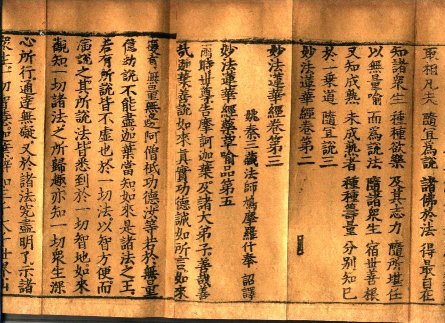 取相凡夫 隨宜為說 諸佛於法 得最自在
知諸眾生 種種欲樂 及其志力 隨所堪任
以無量喻 而為說法 隨諸眾生 宿世善根
又知成熟 未成熟者 種種籌量 分別知已
於一乘道 隨宜說三
妙法蓮華經卷第二
妙法蓮華經卷第三
姚秦三藏法師鳩摩羅什奉 詔譯
妙法蓮華經藥草喻品第五
爾時世尊告摩訶迦葉及諸大弟子善哉善
哉迦葉善說如來真實功德誠如所言如來
復有無量無邊阿僧祇功德汝等若於無量
億劫說不能盡迦葉當知如來是諸法之王
若有所說皆不虛也於一切法以智方便而
演說之其所說法皆悉到於一切智地如來
觀知一切諸法之所歸趣亦知一切眾生深
心所行通達無礙又於諸法究盡明了示諸
眾生一切智慧迦葉譬如三千大千世界山